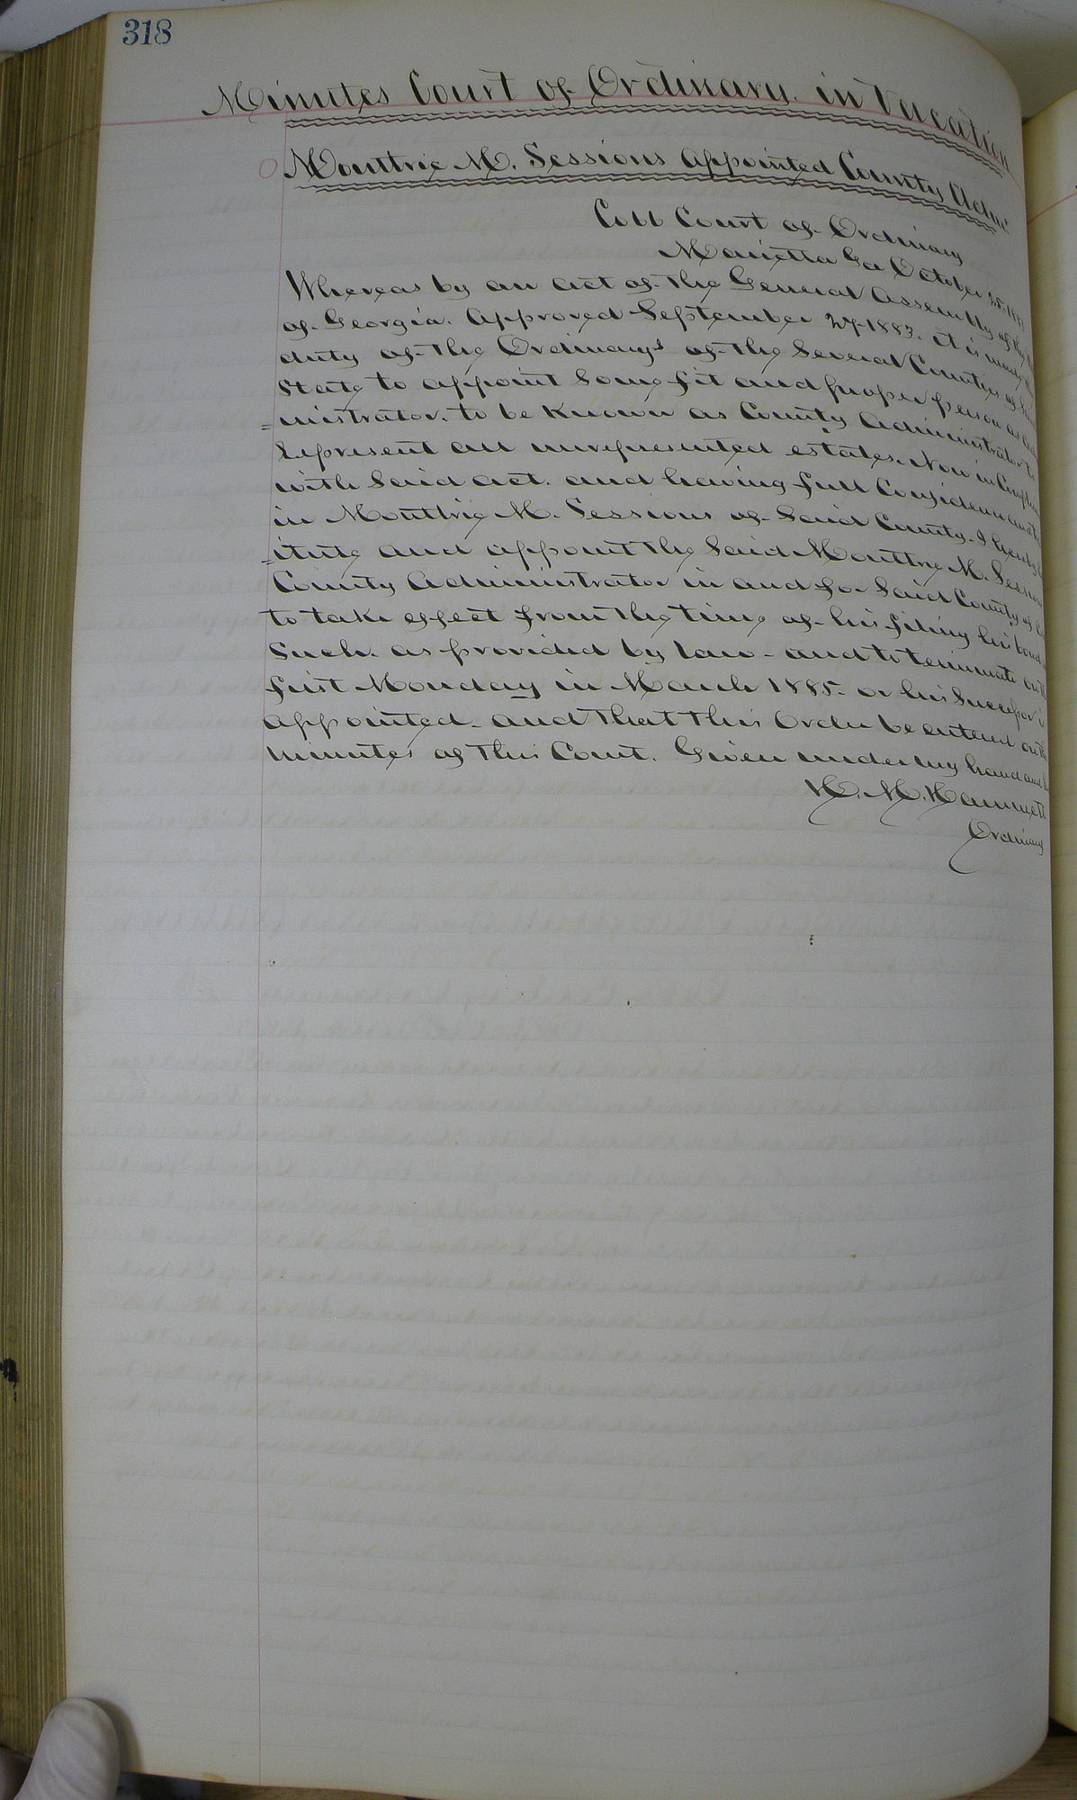 318
Minutes Court of Ordinary. in Vacation
Moultrie M. Sessions appointed County Admr
Cobb Court of Ordinary
Marietta Ga October 25
Whereas by an act of the General Assembly of the
of Georgia. Approved September 27-1883. it is made the
duty of the Ordinary's of the Several Counties of
State to appoint Some fit and proper person as
=ministrator. to be known as County Administrator to
represent all unrepresented estates. Now in
with Said act. and having full Confidence
in Moultrie M. Sessions of Said County. I hereby
=itute and appoint the Said Moultrie M. Sessions
County Administrator in and for Said County of
to take effect from the time of his filing his bond
Such. as provided by law - and to terminate on the
first Monday in March 1885. or his Successor is
appointed. and that this Order be entered on the
minutes of this Court. Given under my hand and
H. M. Hammett
Ordinary